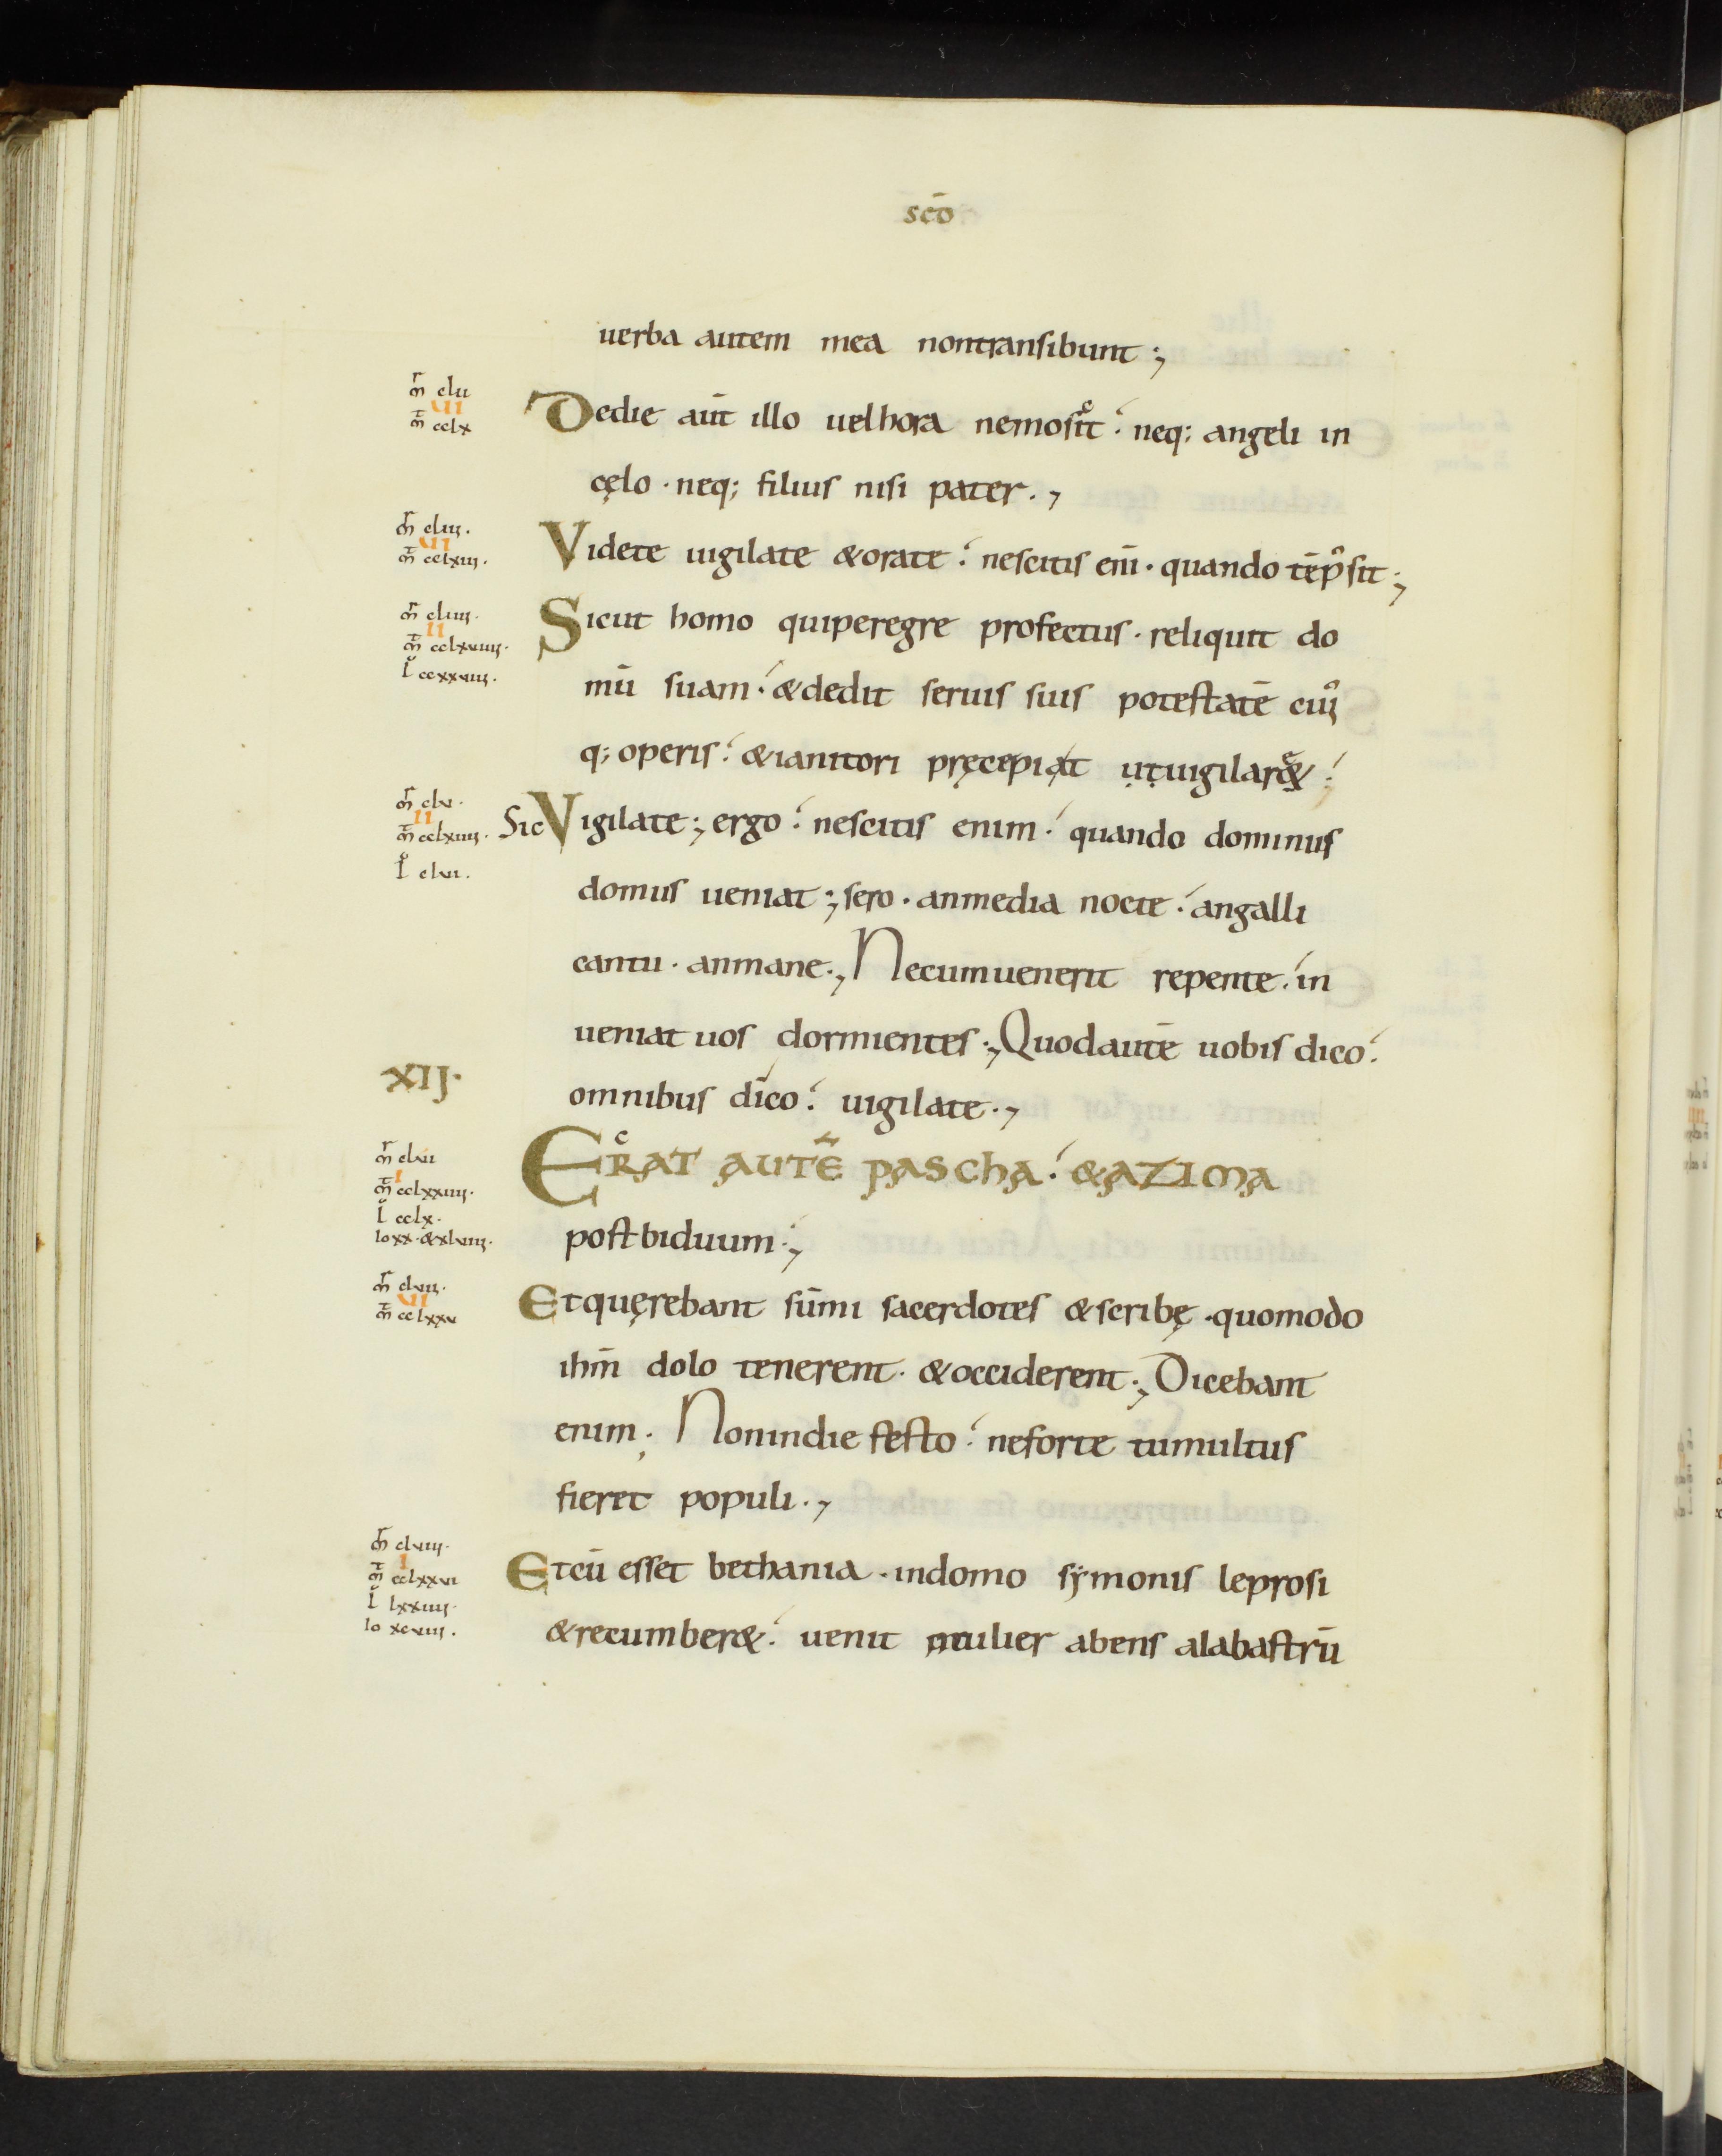 scō
uerba autem mea nontransibunt ;,
m̄r clii
VII
m̄t cclx
Dedie aūt illo uelhora nemoscit : neq; angeli in
cęlo . neq; filius nisi pater . ,
m̄r cliii.
VII
m̄t cclxiii.
Videte uigilate &orate : nescitis enī . quando tēp᷒sit ;,
m̄r cliiii.
II
m̄t cclxviiii.
l᷎ ccxxviii.
Sicut homo quiperegre profectus . reliquit do
mū suam : &dedit seruis suis potestatē cui᷒
q; operis : &ianitori pręcepiat utuigilare& :
m̄r clv.
II
m̄t cclxiiii.
l᷎ clvi.
Sic Vigilate ;, ergo : nescitis enim : quando dominus
domus ueniat ;, sero . anmedia nocte : angalli
cantu . anmane . , Necumuenerit repente : in
ueniat uos dormientes ;, Quodautē uobis dico :
XIJ.
omnibus dīco : uigilate . ,
m̄r clvii
I
m̄t cclxxiiii.
l᷎ cclx.
io xx . & xlviii.
ERAT AUTĒ PASCHA : &AZIMA
postbiduum ;,
m̄r clvii.
VII
m̄t cclxxv
Etquęrebant sūmi sacerdotes &scribę . quomodo
ihm̄ dolo tenerent . &occiderent ;, Dicebant
enim ; Nonindie festo : neforte tumultus
fieret populi . ,
m̄r clviii.
I
m̄t cclxxvi
l᷎ lxxiiii.
io xcviii.
Etcū esset bethania . indomo sẏmonis leprosi
&recumber& : uenit mulier abens alabastrū